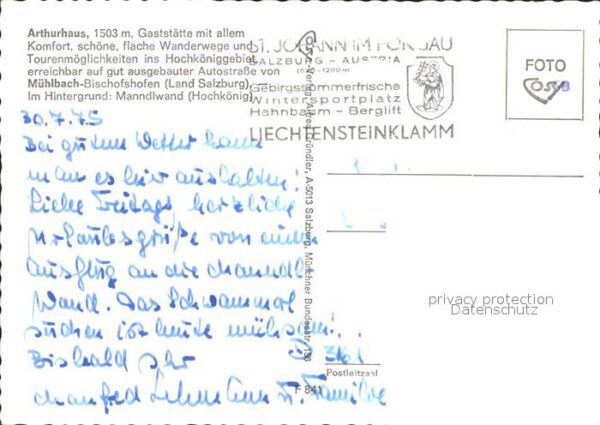 Arthurhaus, 1503 m, Gaststätte mit allem
Komfort, schöne, flache Wanderwege und
Tourenmöglichkeiten ins Hochköniggebiet,
erreichbar auf gut ausgebauter Autostraße von
Mühlbach-Bischofshofen (Land Salzburg).
Im Hintergrund: Manndlwand (Hochkönig)
ST. JOHANN IM PONGAU
SALZBURG - AUSTRIA
Gebirgssommerfrische
Wintersportplatz
Hahnbaum - Berglift
LIECHTENSTEINKLAMM
FOTO
30.7.75
Bei gutem Wetter kann
man es hier aushalten!
Liebe Freitags herzliche
Urlaubsgrüße von einem
Ausflug an die Manndl
Wand. Das Schwammerl
suchen ist heute mühsam!
Bis bald Ihr
Manfred Lehmann u. Familie
A-5013 Salzburg, Münchner Bundesstr.
privacy protection
Datenschutz
Postleitzahl
F 841